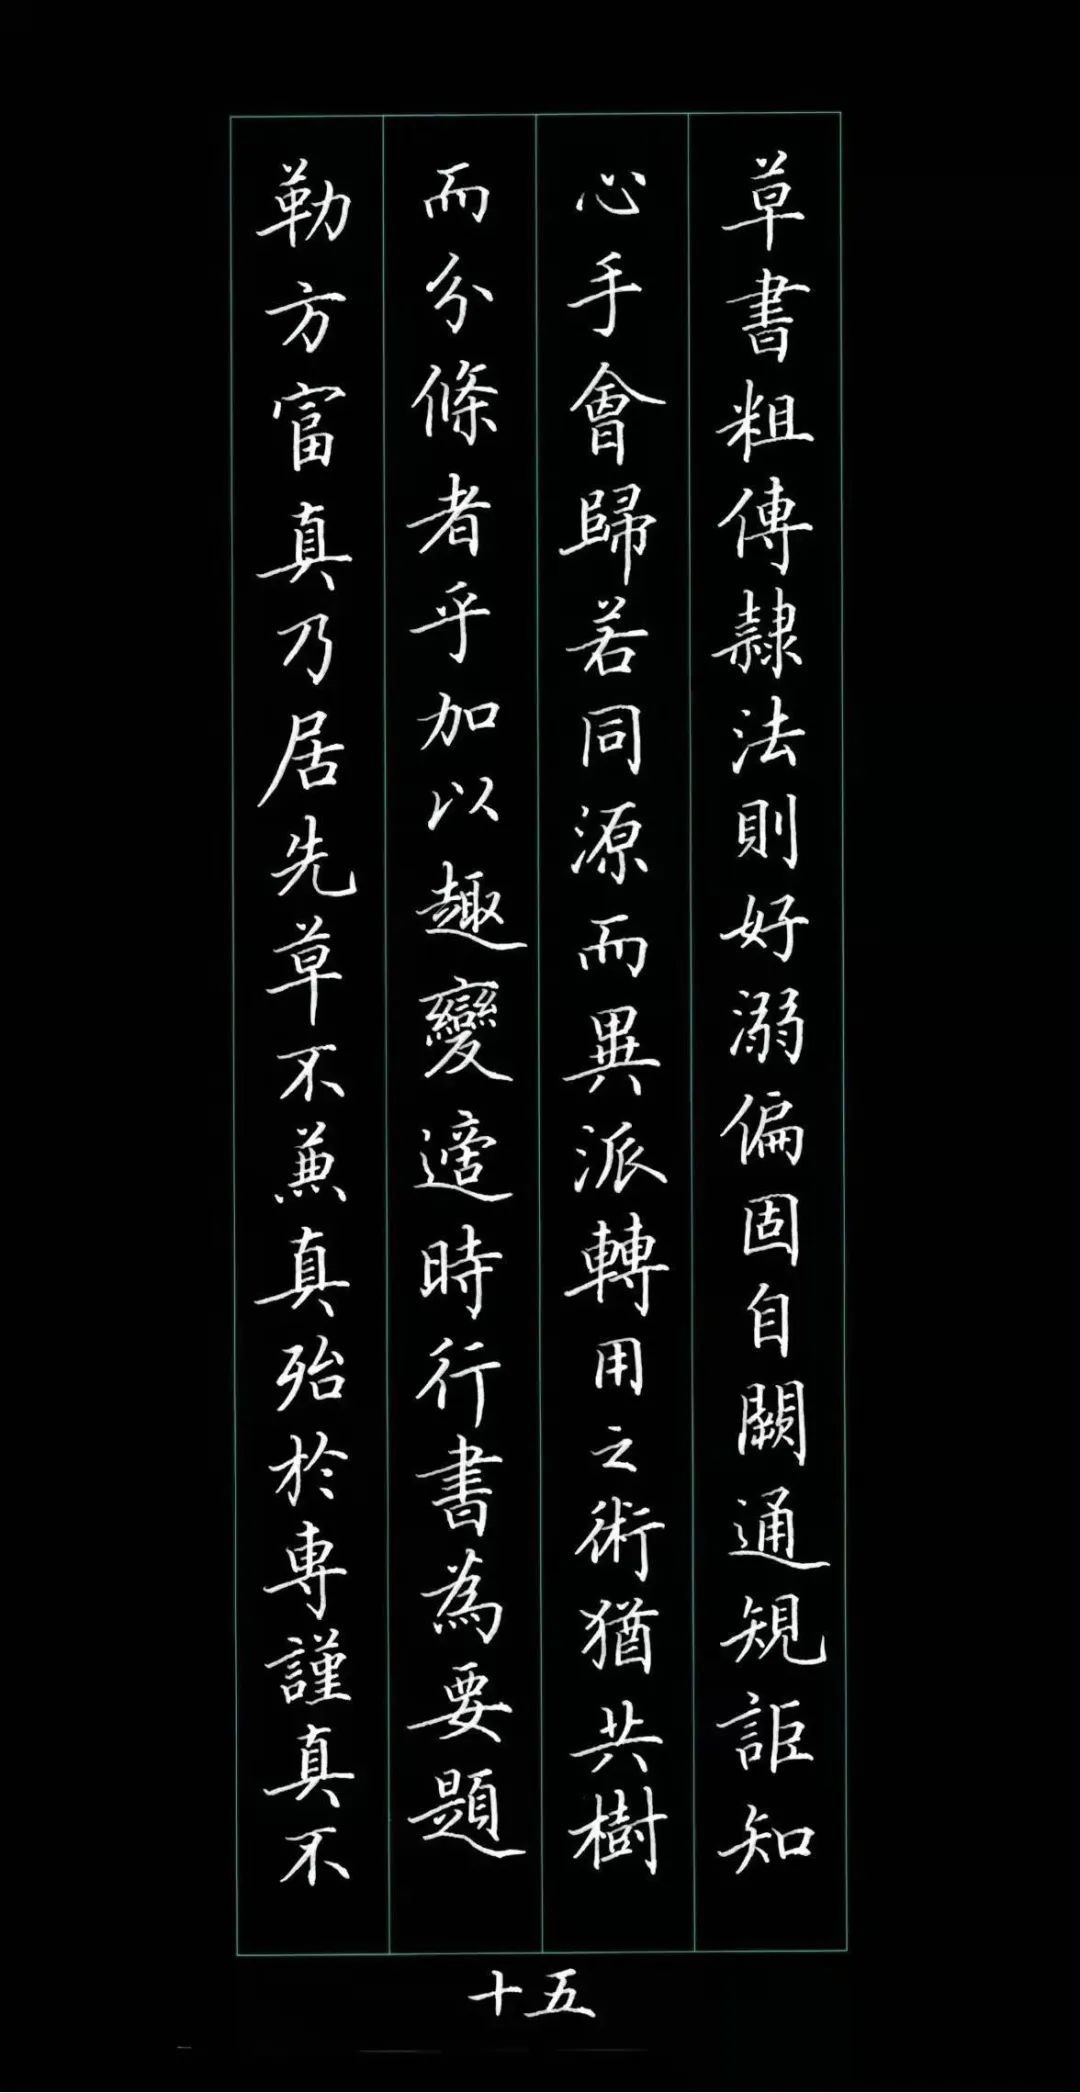 草書粗傳隸法則好溺偏固自闕通規詎知
心手會歸若同源而異派轉用之術猶共樹
而分條者乎加以趣變適時行書為要題
勒方富真乃居先草不兼真殆於專謹真不
十五